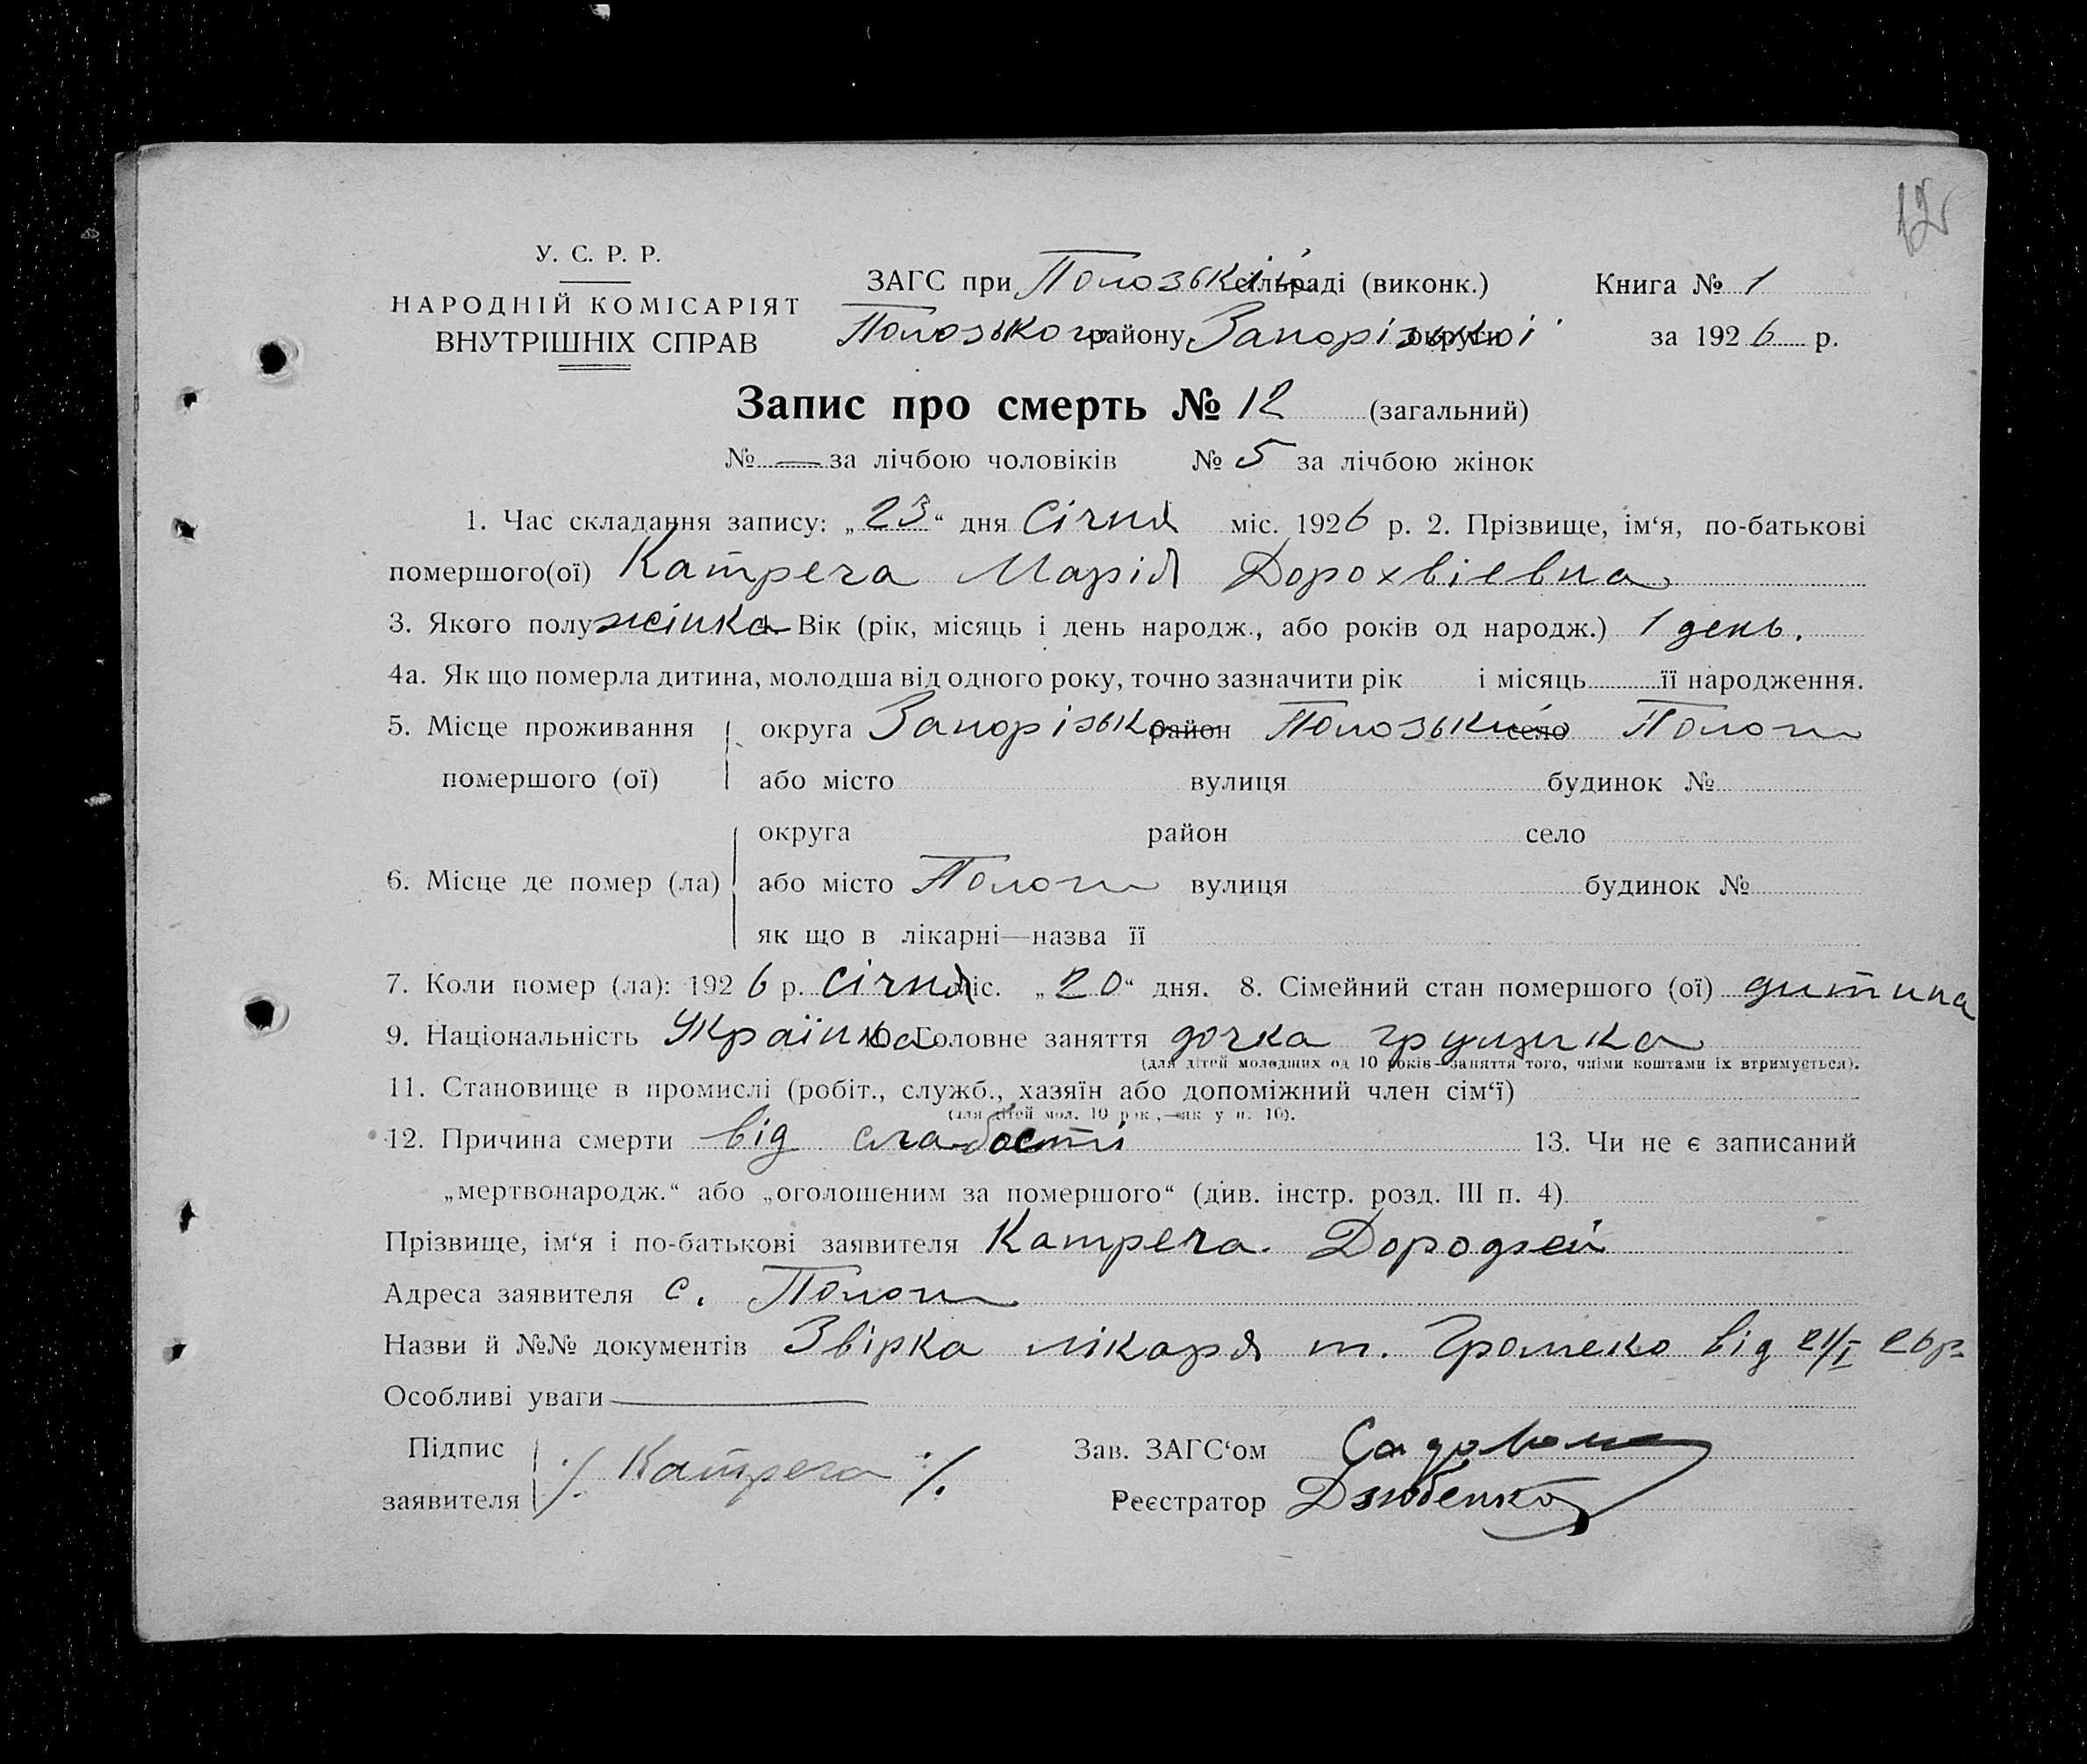 12
У. С. Р. Р.
НАРОДНІЙ КОМІСАРІЯТ
ВНУТРІШНІХ СПРАВ
ЗАГС при Полозькій сільраді (виконк.)
Полозького району Запорізькоі округи
Книга № 1
за 1926 р.
Запис про смерть № 12 (загальний)
№ — за лічбою чоловіків № 5 за лічбою жінок
1. Час складання запису: „23“ дня Січня міс. 1926 р. 2. Прізвище, ім‘я, по-батькові
помершого(ої) Катреча Марія Дорохвіевна
3. Якого полу жінка Вік (рік, місяць і день народж., або років од народж.) 1 день.
4а. Як що померла дитина, молодша від одного року, точно зазначити рік і місяць її народження.
5. Місце проживання округа Запорізьк район Полозький село Пологи
помершого (ої) або місто вулиця будинок №
округа район село
6. Місце де помер (ла) або місто Пологи вулиця будинок №
як що в лікарні—назва її
7. Коли помер (ла): 1926 р. січня міс. „20“ дня. 8. Сімейний стан помершого (ої) дитина
9. Національність Українка 10. Головне заняття дочка грузчика
(для дітей молодших од 10 років—заняття того, чиїми коштами їх втримується).
11. Становище в промислі (робіт., служб., хазяїн або допоміжний член сім‘ї)
(для дітей мол. 10 рок.,—як у п. 10).
12. Причина смерти від слабості 13. Чи не є записаний
„мертвонародж.“ або „оголошеним за помершого“ (див. інстр. розд. III п. 4)
Прізвище, ім‘я і по-батькові заявителя Катреча Дорофей
Адреса заявителя с. Пологи
Назви й №№ документів Звірка лікаря т. Громеко від 21/I 26 р.
Особливі уваги —
Підпис заявителя ·/. Катреча ·/.
Зав. ЗАГС‘ом
Реєстратор Дзюбенко